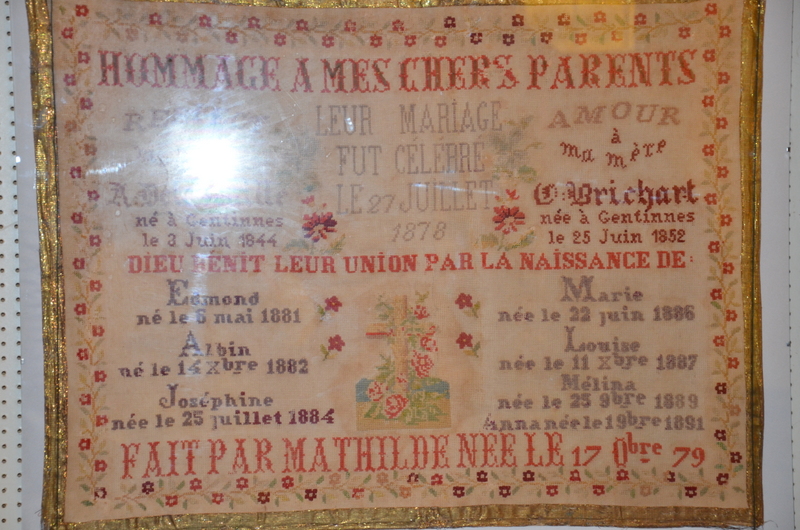 HOMMAGE A MES CHERS PARENTS
LEUR MARIAGE
FUT CÉLÉBRÉ
LE 27 JUILLET
1878
né à Gentinnes
le 3 Juin 1844
AMOUR
à
ma mère
C. Brichart
née à Gentinnes
le 25 Juin 1852
DIEU BÉNIT LEUR UNION PAR LA NAISSANCE DE:
Edmond
né le 6 mai 1881
Albin
né le 14 Xbre 1882
Joséphine
née le 25 juillet 1884
Marie
née le 22 juin 1886
Louise
née le 11 Xbre 1887
Mélina
née le 25 9bre 1889
Anna née le 19bre 1891
FAIT PAR MATHILDE NÉE LE 17 Obre 79